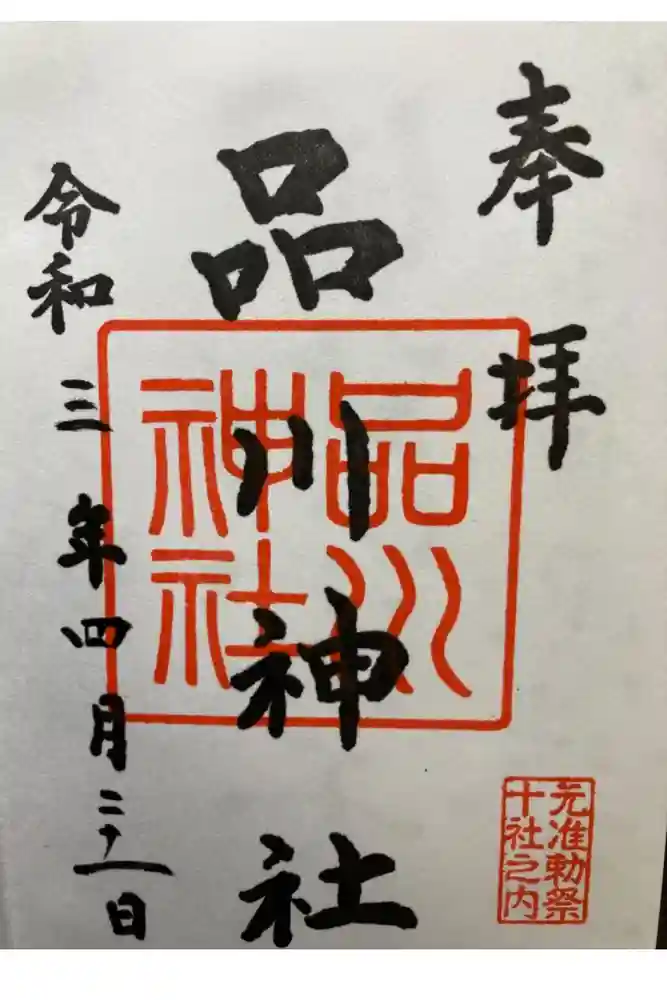 奉拝
品川神社
品川
神社
令和三年四月二十一日
元准勅祭
十社之内